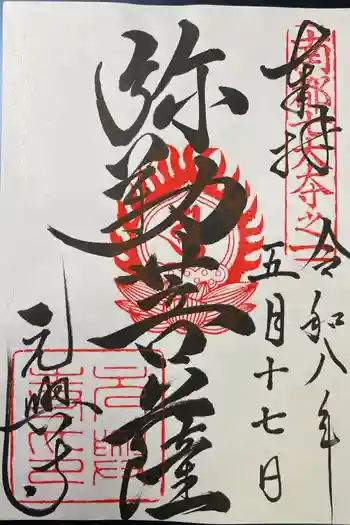 奉拝
南都七大寺之一
令和八年
五月十七日
弥勒菩薩
元興寺